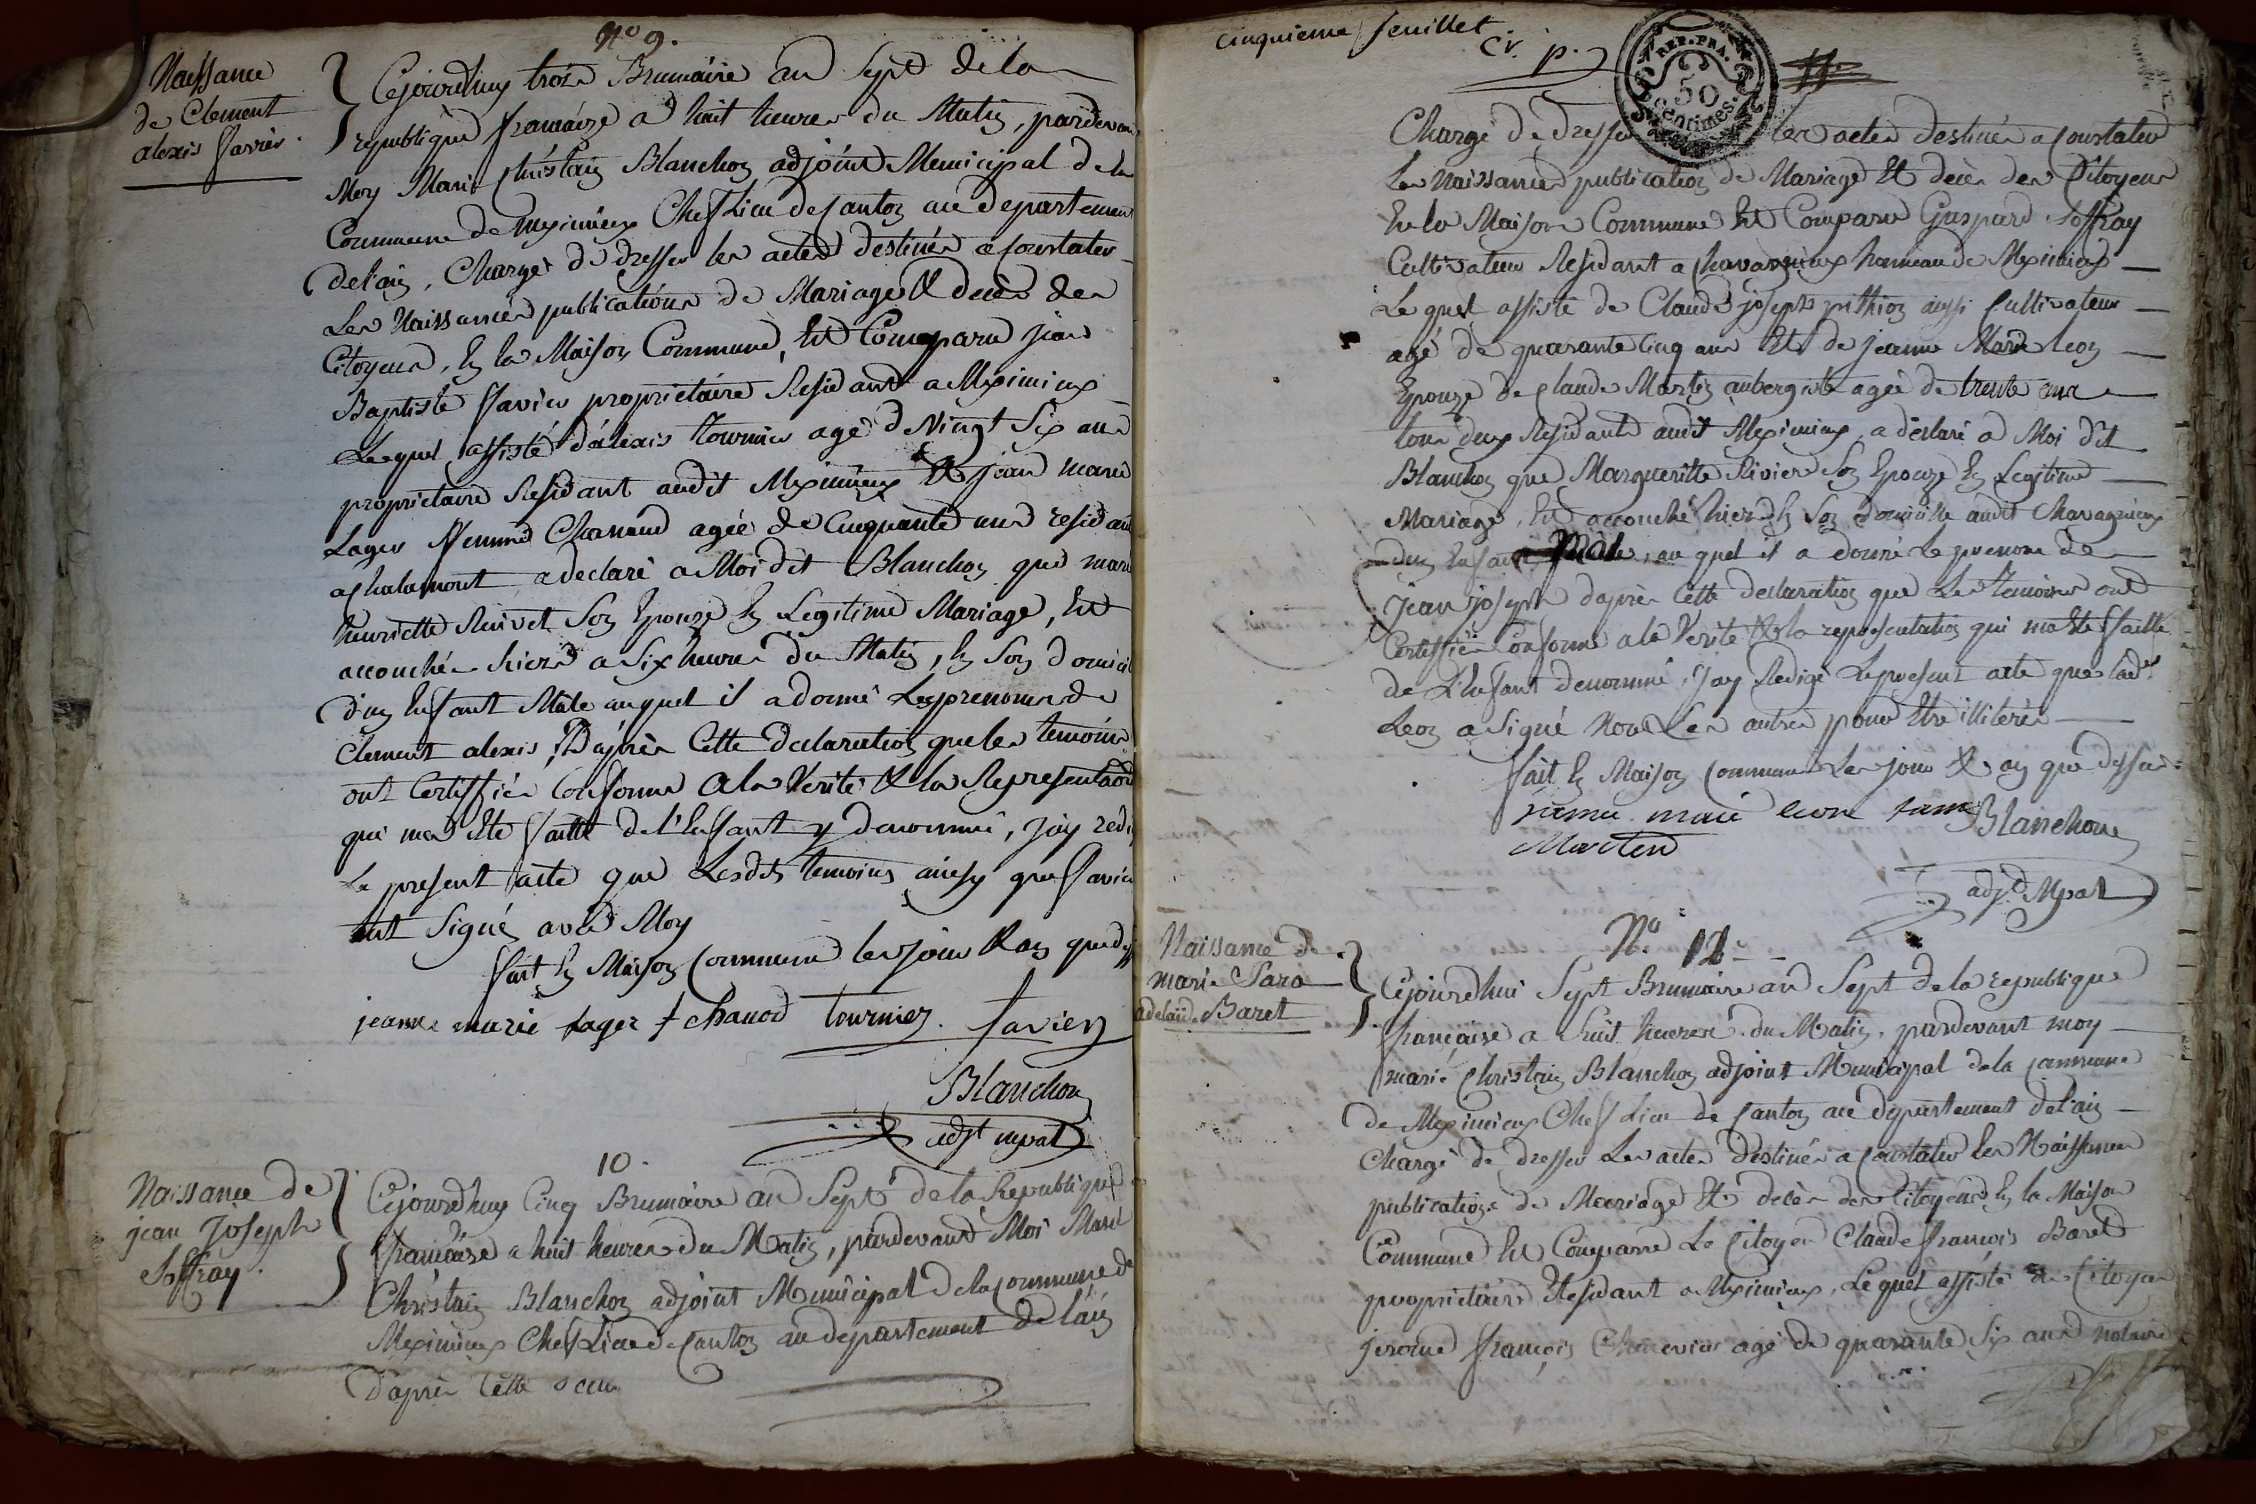 N.o 9.
Naissance
de Clement
alexis favier.
Cejourdhuy troize Brumaire an Sept de la
republique francaize a huit heures du Matin, pardevant
Moy Marie Christain Blanchon adjoint Municipal de la
Commune de Meximieux Chef Lieu de Canton au departement
de l'ain, Chargé de dresser les actes destinés a Constater
Les Naissances publications de Mariage & decès des
Citoyens, En la Maison Commune, Est Comparu jean
Baptiste favier proprietaire Residant a Meximieux
Lequel assisté d'alexis tournier agé de Vingt Six ans
proprietaire Residant audit Meximieux & jean marie
Lager ffemme Chanaud agée de Cinquante ans residant
a Chalamont, a declaré a Moi dit Blanchon que marie
henriette Ruivet Son Epouze En Legitime Mariage, Est
accouchée hier a Six heures du Matin, En Son domicile
d'un Enfant Male auquel il a donné Les prenoms de
Clement alexis, D'après Cette declaration que les temoins
ont Certiffiée Conforme a la Verité & la Representaon
qui ma Eté faitte de l'Enfant y denommé, jay redi
Le present acte que Lesdts temoins ainsy que favier
ont Signé avec Moy
fait En Maison Commune les jour & an que d
jeanne marie lager f chanod tournier. favier
Blanchon
adjt mpal
10.
Naissance de
jean joseph
Soffray.
Cejourdhuy Cinq Brumaire an Sept de la Republique
francaize a huit heures du Matin, pardevant Moi Marie
Christain Blanchon adjoint Municipal de la commune de
Meximieux Chef Lieu de Canton au departement de l'ain
D'après Cette
cinquieme feuillet
REP. FRA.
50
Centimes.
Chargé de Dresser les actes destinés a Constater
Les Naissances publication de Mariage Et decès des Citoyens
En la Maison Commune Est Comparu Gaspard Soffray
Cultivateur Residant a Chavagnieux hameau de Meximieux
Lequel assisté de Claude joseph pithion aussi Cultivateur
agé de quarante Cinq ans Et de jeanne Marie Leon
Epouze de Claude Martin aubergiste agée de trente ans
tous deux Residants audit Meximieux, a déclaré a Moi dit
Blanchon que Margueritte Rivier Son Epouze En Legitime
Mariage, Est accouché hier En Son domicille audit Chavagnieux
d'un Enfant Male, au quel il a donné le prenom de
jean joseph d'après Cette declaration que Les temoins ont
Certiffiée Conforme a la Verité & la representation qui ma Eté ffaitte
de L'Enfant denommé, Jay Redigé Le present acte que lad.
Leon a Signé Non Les autres pour Etre illiterés
fait En Maison Commune Les jour & an que dessus.
marie leon fame Blanchon
Marten
adjt Mpal
N.o 12
Naissance de
marie Sara
adelaide Baret
Cejourdhui Sept Brumaire an Sept de la republique
française a huit heures du Matin, pardevant moy
marie Christain Blanchon adjoint Municipal de la commune
de Meximieux Chef Lieu de Canton au departement de l'ain
Chargé de dresser Les actes destinés a Constater les Naissances
publications de Mariage Et decès des Citoyens En la Maison
Commune Est Comparu Le Citoyen Claude francois Baret
proprietaire Residant a Meximieux, Lequel assisté du Citoyen
jerome françois Chenevier agé de quarante Six ans notaire